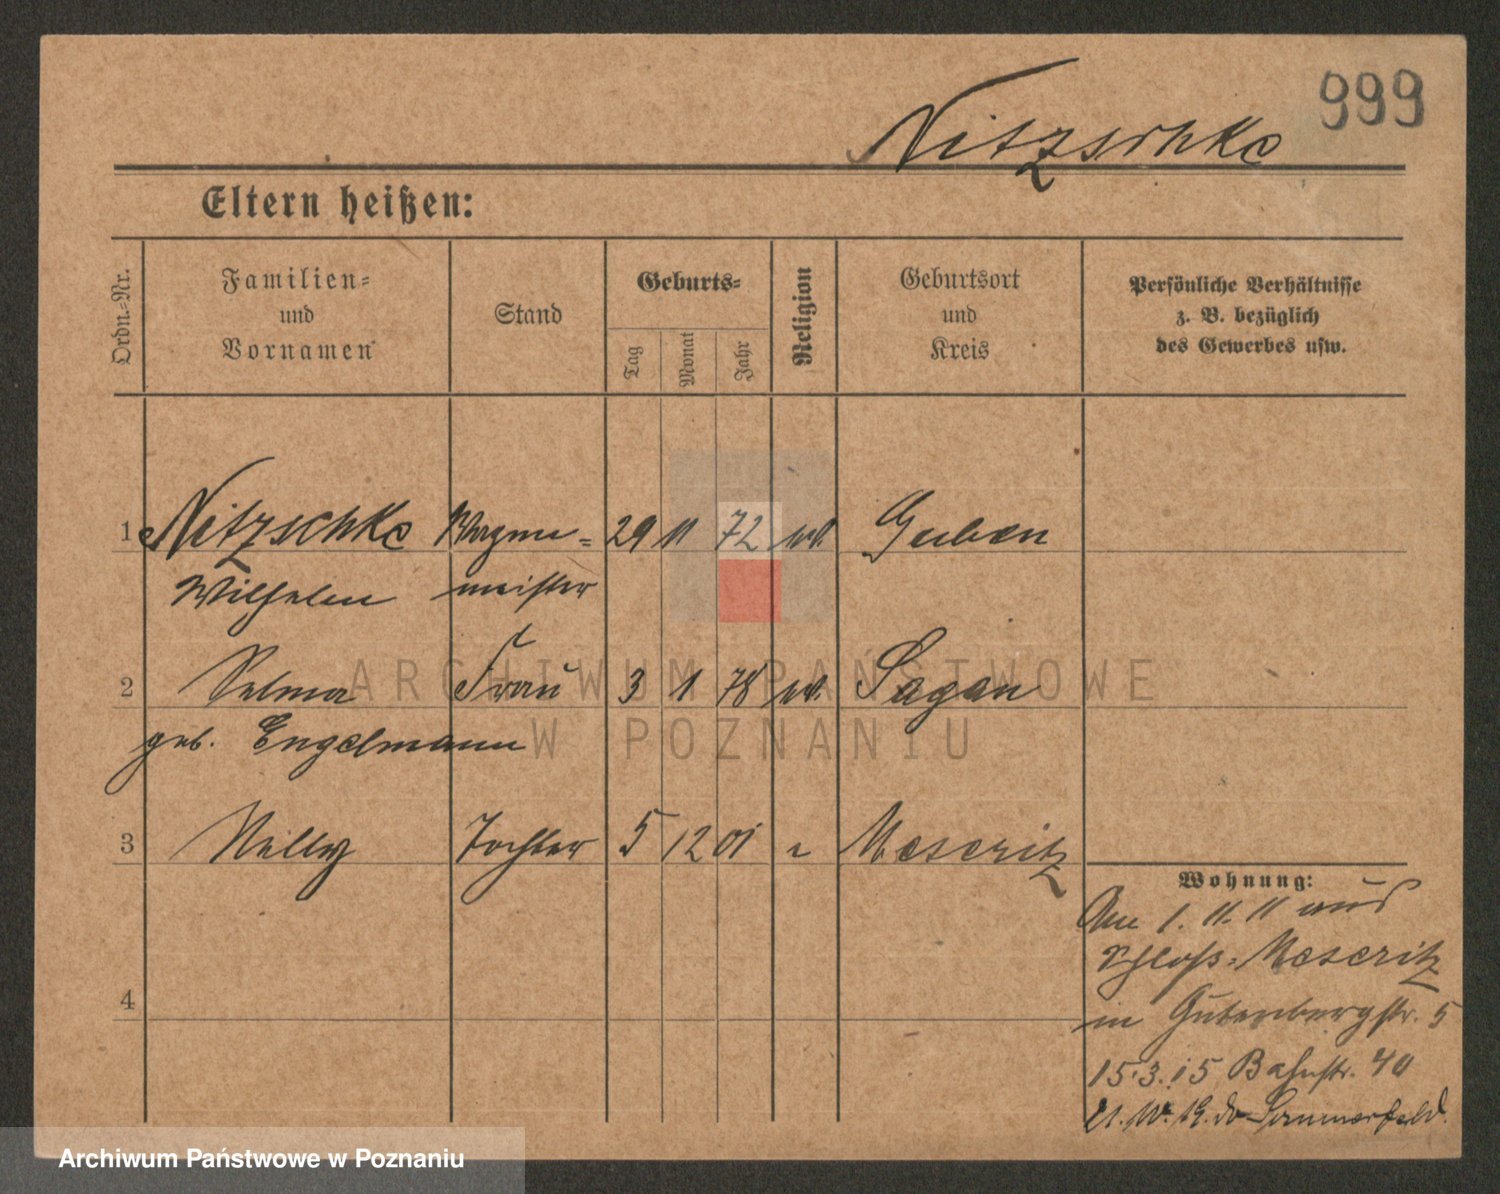 999
Nitzschke
Eltern heißen:
Ordn.-Nr.
Familien-
und
Vornamen
Stand
Geburts-
Tag
Monat
Jahr
Religion
Geburtsort
und
Kreis
Persönliche Verhältnisse
z. B. bezüglich
des Gewerbes usw.
1 Nitzschke Wagen- 29 11 72 Guben
Wilhelm meister
2 Selma Frau 3 1 78 Sagan
geb. Engelmann
3 Nelly Tochter 5 12 01 Meseritz
Wohnung:
Am 1. 11. 11 aus
Schloß-Meseritz
in Gutenbergstr. 5
15.3.15 Bahnstr. 40
Sommerfeld.
4
ARCHIWUM PAŃSTWOWE
W POZNANIU
Archiwum Państwowe w Poznaniu